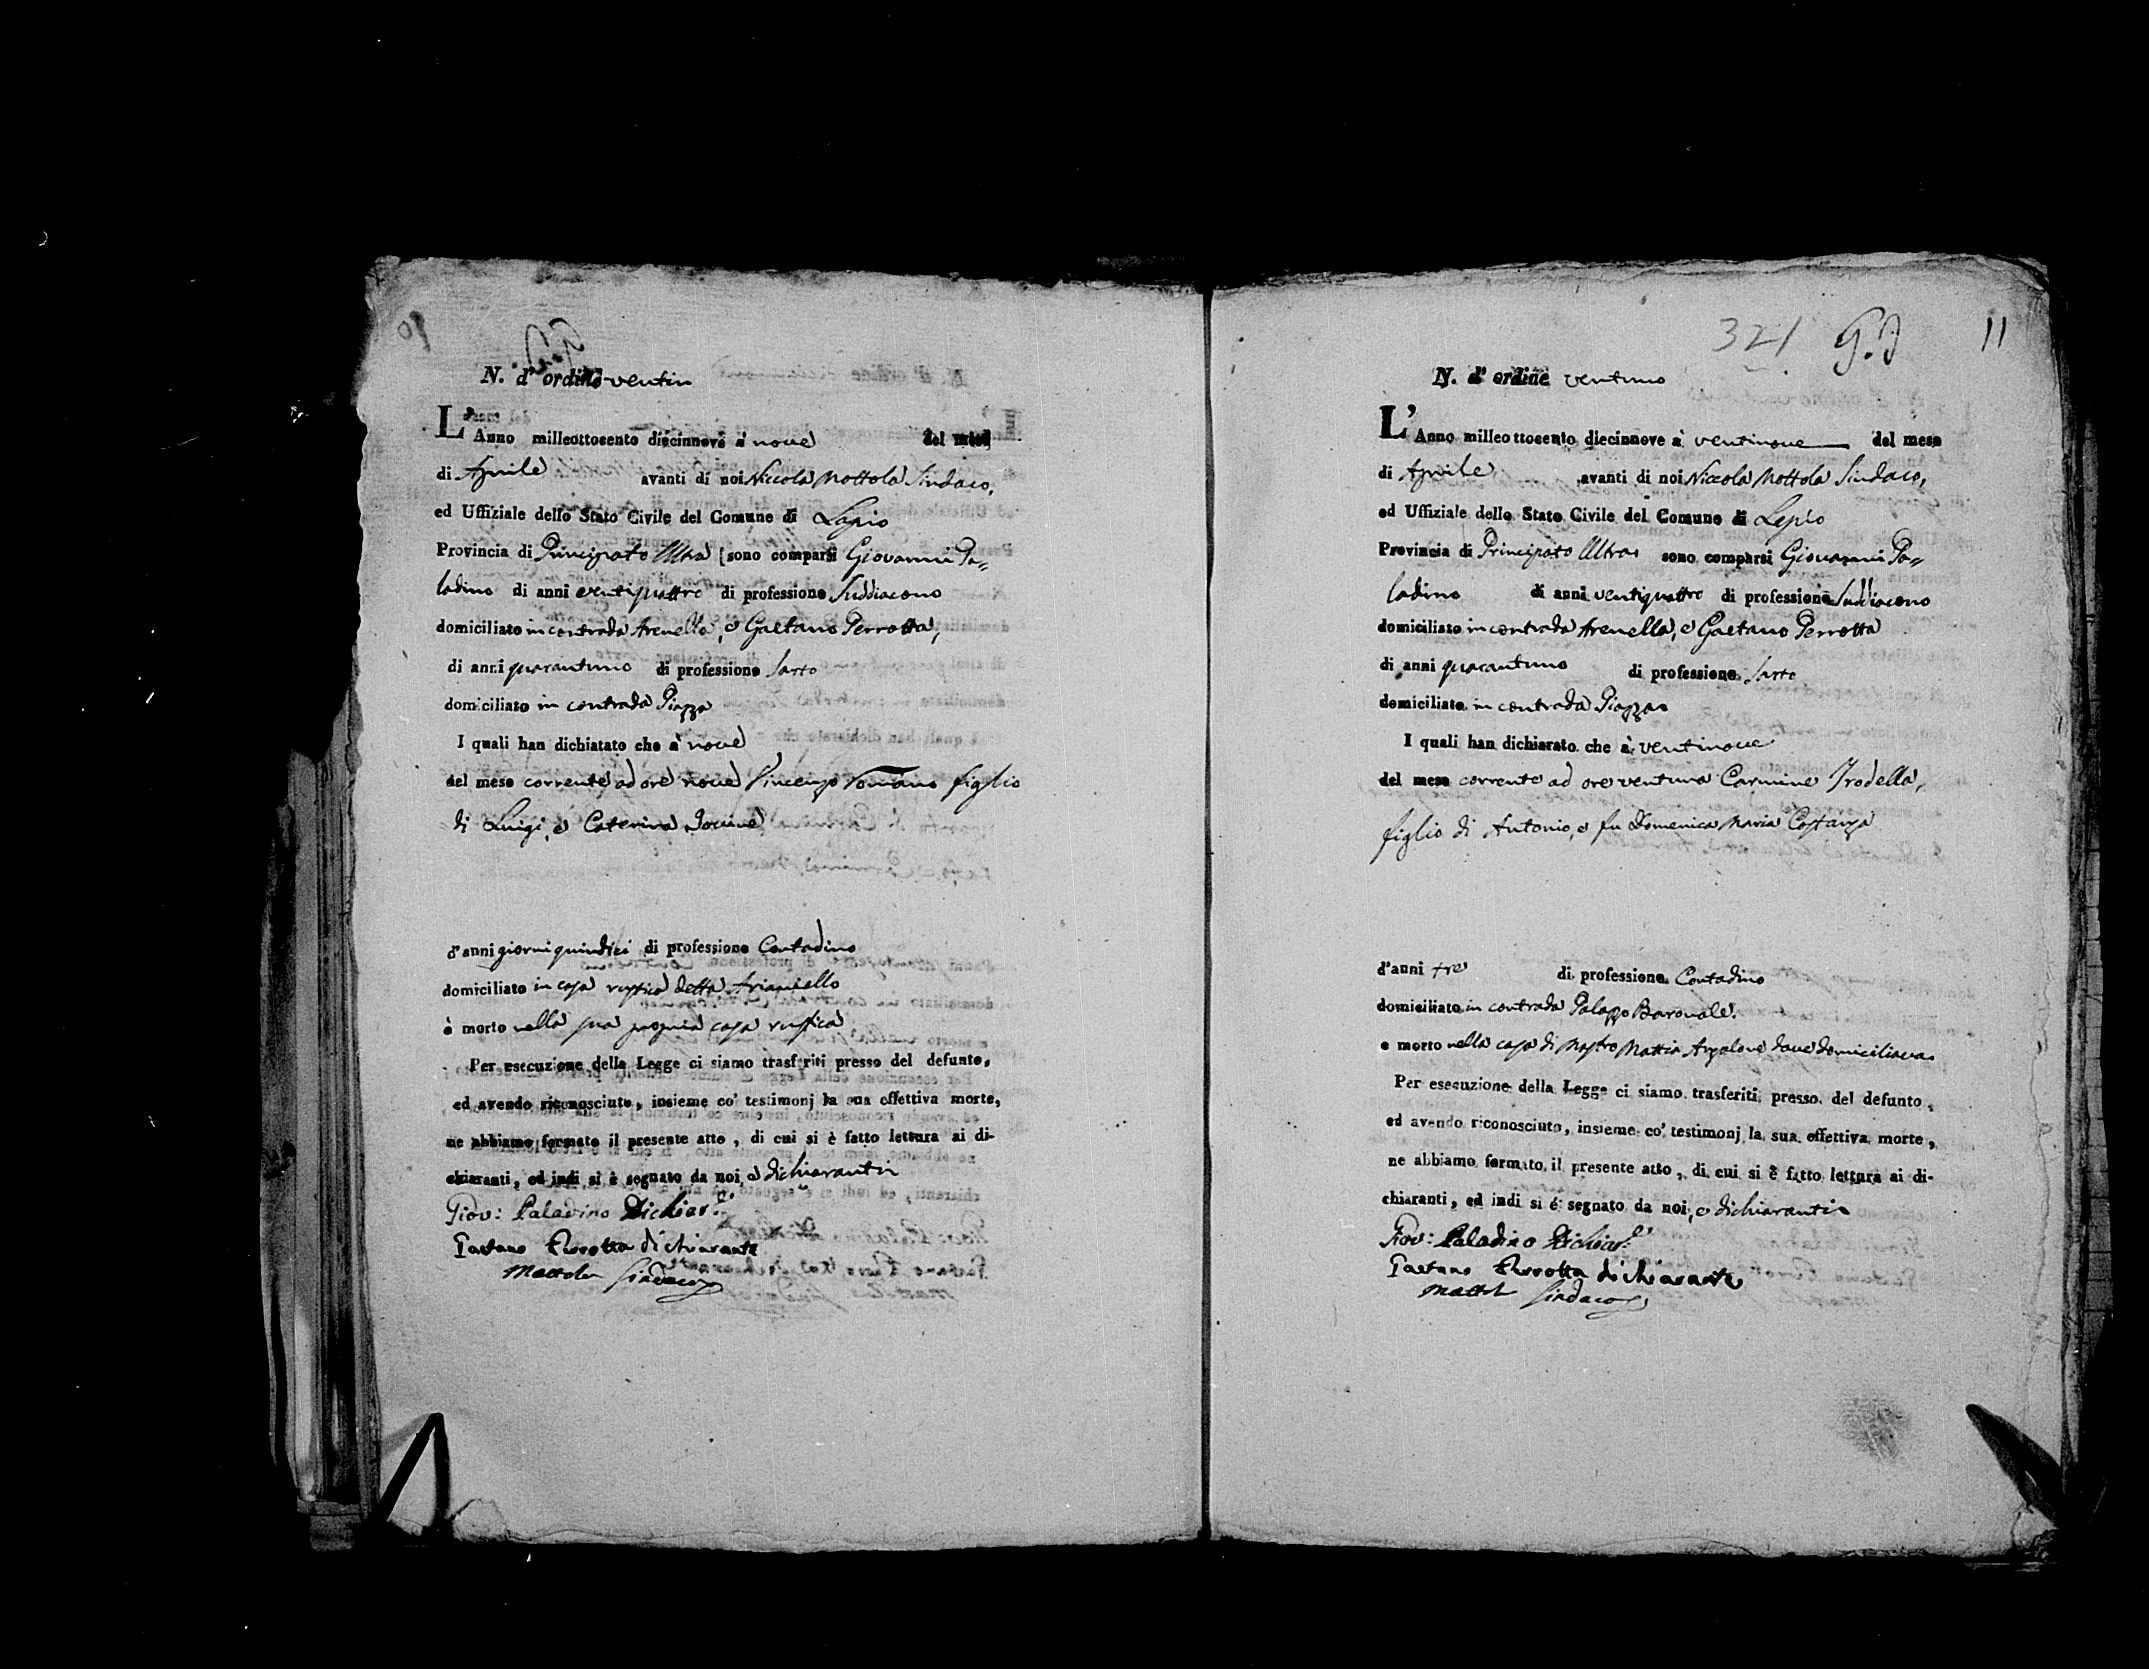 N. d' ordine venti
L' Anno milleottocento diecinnove a' nove del mese
di Aprile avanti di noi Niccola Mottola Sindaco,
ed Uffiziale dello Stato Civile del Comune di Lapio
Provincia di Principato Ultra sono comparsi Giovanni Pa=
ladino di anni ventiquattro di professione Suddiacono
domiciliato in contrada Arenella, e Gaetano Perrotta,
di anni quarantuno di professione Sarto
domiciliato in contrada Piazza
I quali han dichiatato che a' nove
del mese corrente ad ore nove Vincenzo Romano figlio
di Luigi, e Caterina Iovine
d'anni giorni quindici di professione Contadino
domiciliato in casa rustica detta Arianiello
è morto nella sua propria casa rustica
Per esecuzione della Legge ci siamo trasferiti presso del defunto,
ed avendo riconosciuto, insieme co' testimonj la sua effettiva morte,
ne abbiamo formato il presente atto, di cui si è fatto lettura ai di-
chiaranti, ed indi si è segnato da noi, e dichiaranti
Giov: Paladino Dichiar.e
Gaetano Perrotta dichiarante
Mottola Sindaco
321 11
N. d' ordine ventuno
L' Anno milleottocento diecinnove a' ventinove del mese
di Aprile avanti di noi Niccola Mottola Sindaco,
ed Uffiziale dello Stato Civile del Comune di Lapio
Provincia di Principato Ultra sono comparsi Giovanni Pa=
ladino di anni ventiquattro di professione Suddiacono
domiciliato in contrada Arenella, e Gaetano Perrotta
di anni quarantuno di professione Sarto
domiciliato in contrada Piazza
I quali han dichiarato che a' ventinove
del mese corrente ad ore ventuna Carmine Trodella,
figlio di Antonio, e fu Domenica Maria Costanza
d'anni tre di professione Contadino
domiciliato in contrada Palazzo Baronale.
e morto nella casa di Mastro Mattia dove domiciliava
Per esecuzione della Legge ci siamo trasferiti presso del defunto,
ed avendo riconosciuto, insieme co' testimonj la sua effettiva morte,
ne abbiamo formato il presente atto, di cui si è fatto lettura ai di-
chiaranti, ed indi si é segnato da noi, e dichiaranti
Giov: Paladino Dichiar.e
Gaetano Perrotta dichiarante
Mottola Sindaco